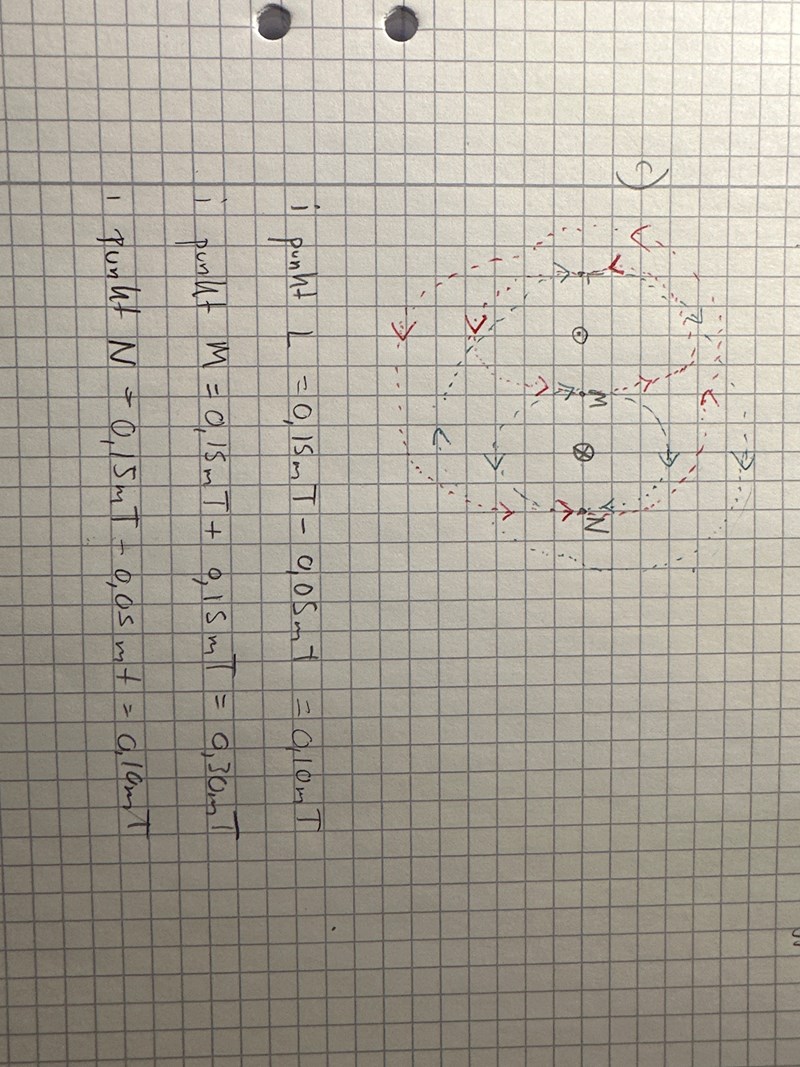 c)
L
M
N
i punkt L = 0,15mT - 0,05mT = 0,10mT
i punkt M = 0,15mT + 0,15mT = 0,30mT
i punkt N = 0,15mT - 0,05mt = 0,10mT